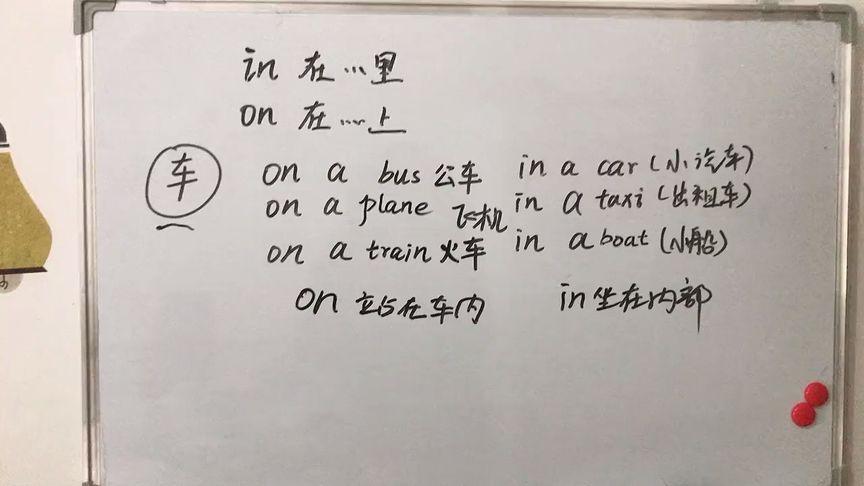 in 在…里
on 在……上
车
on a bus 公车 in a car (小汽车)
on a plane 飞机 in a taxi (出租车)
on a train 火车 in a boat (小船)
on 站在车内 in 坐在内部